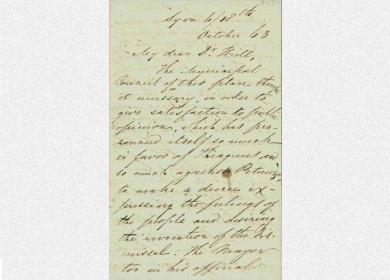 Syra 6/18th
October 63
My dear Dr. Hill,
The Municipal
Council of this place thought
it necessary, in order to
give satisfaction to public
opinion, which has pro-
nounced itself so much
in favor of and
so much against
to make a decree ex-
pressing the feelings of
the people and desiring
the invocation of the
: the Mayor
too in his official